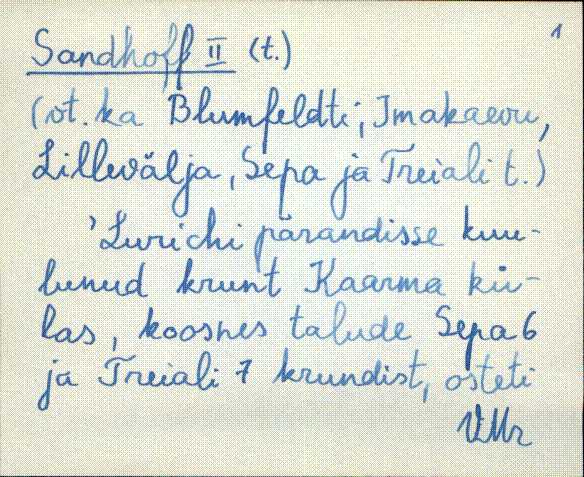 1
Sandhoff II (t.)
(vt. ka Blumfeldti; Imakaevu,
Lillevälja, Sepa ja Treiali t.)
'Lurichi pärandisse kuu-
lunud krunt Kaarma kü-
las, koosnes talude Sepa 6
ja Treiali 7 krundist, osteti
VMr